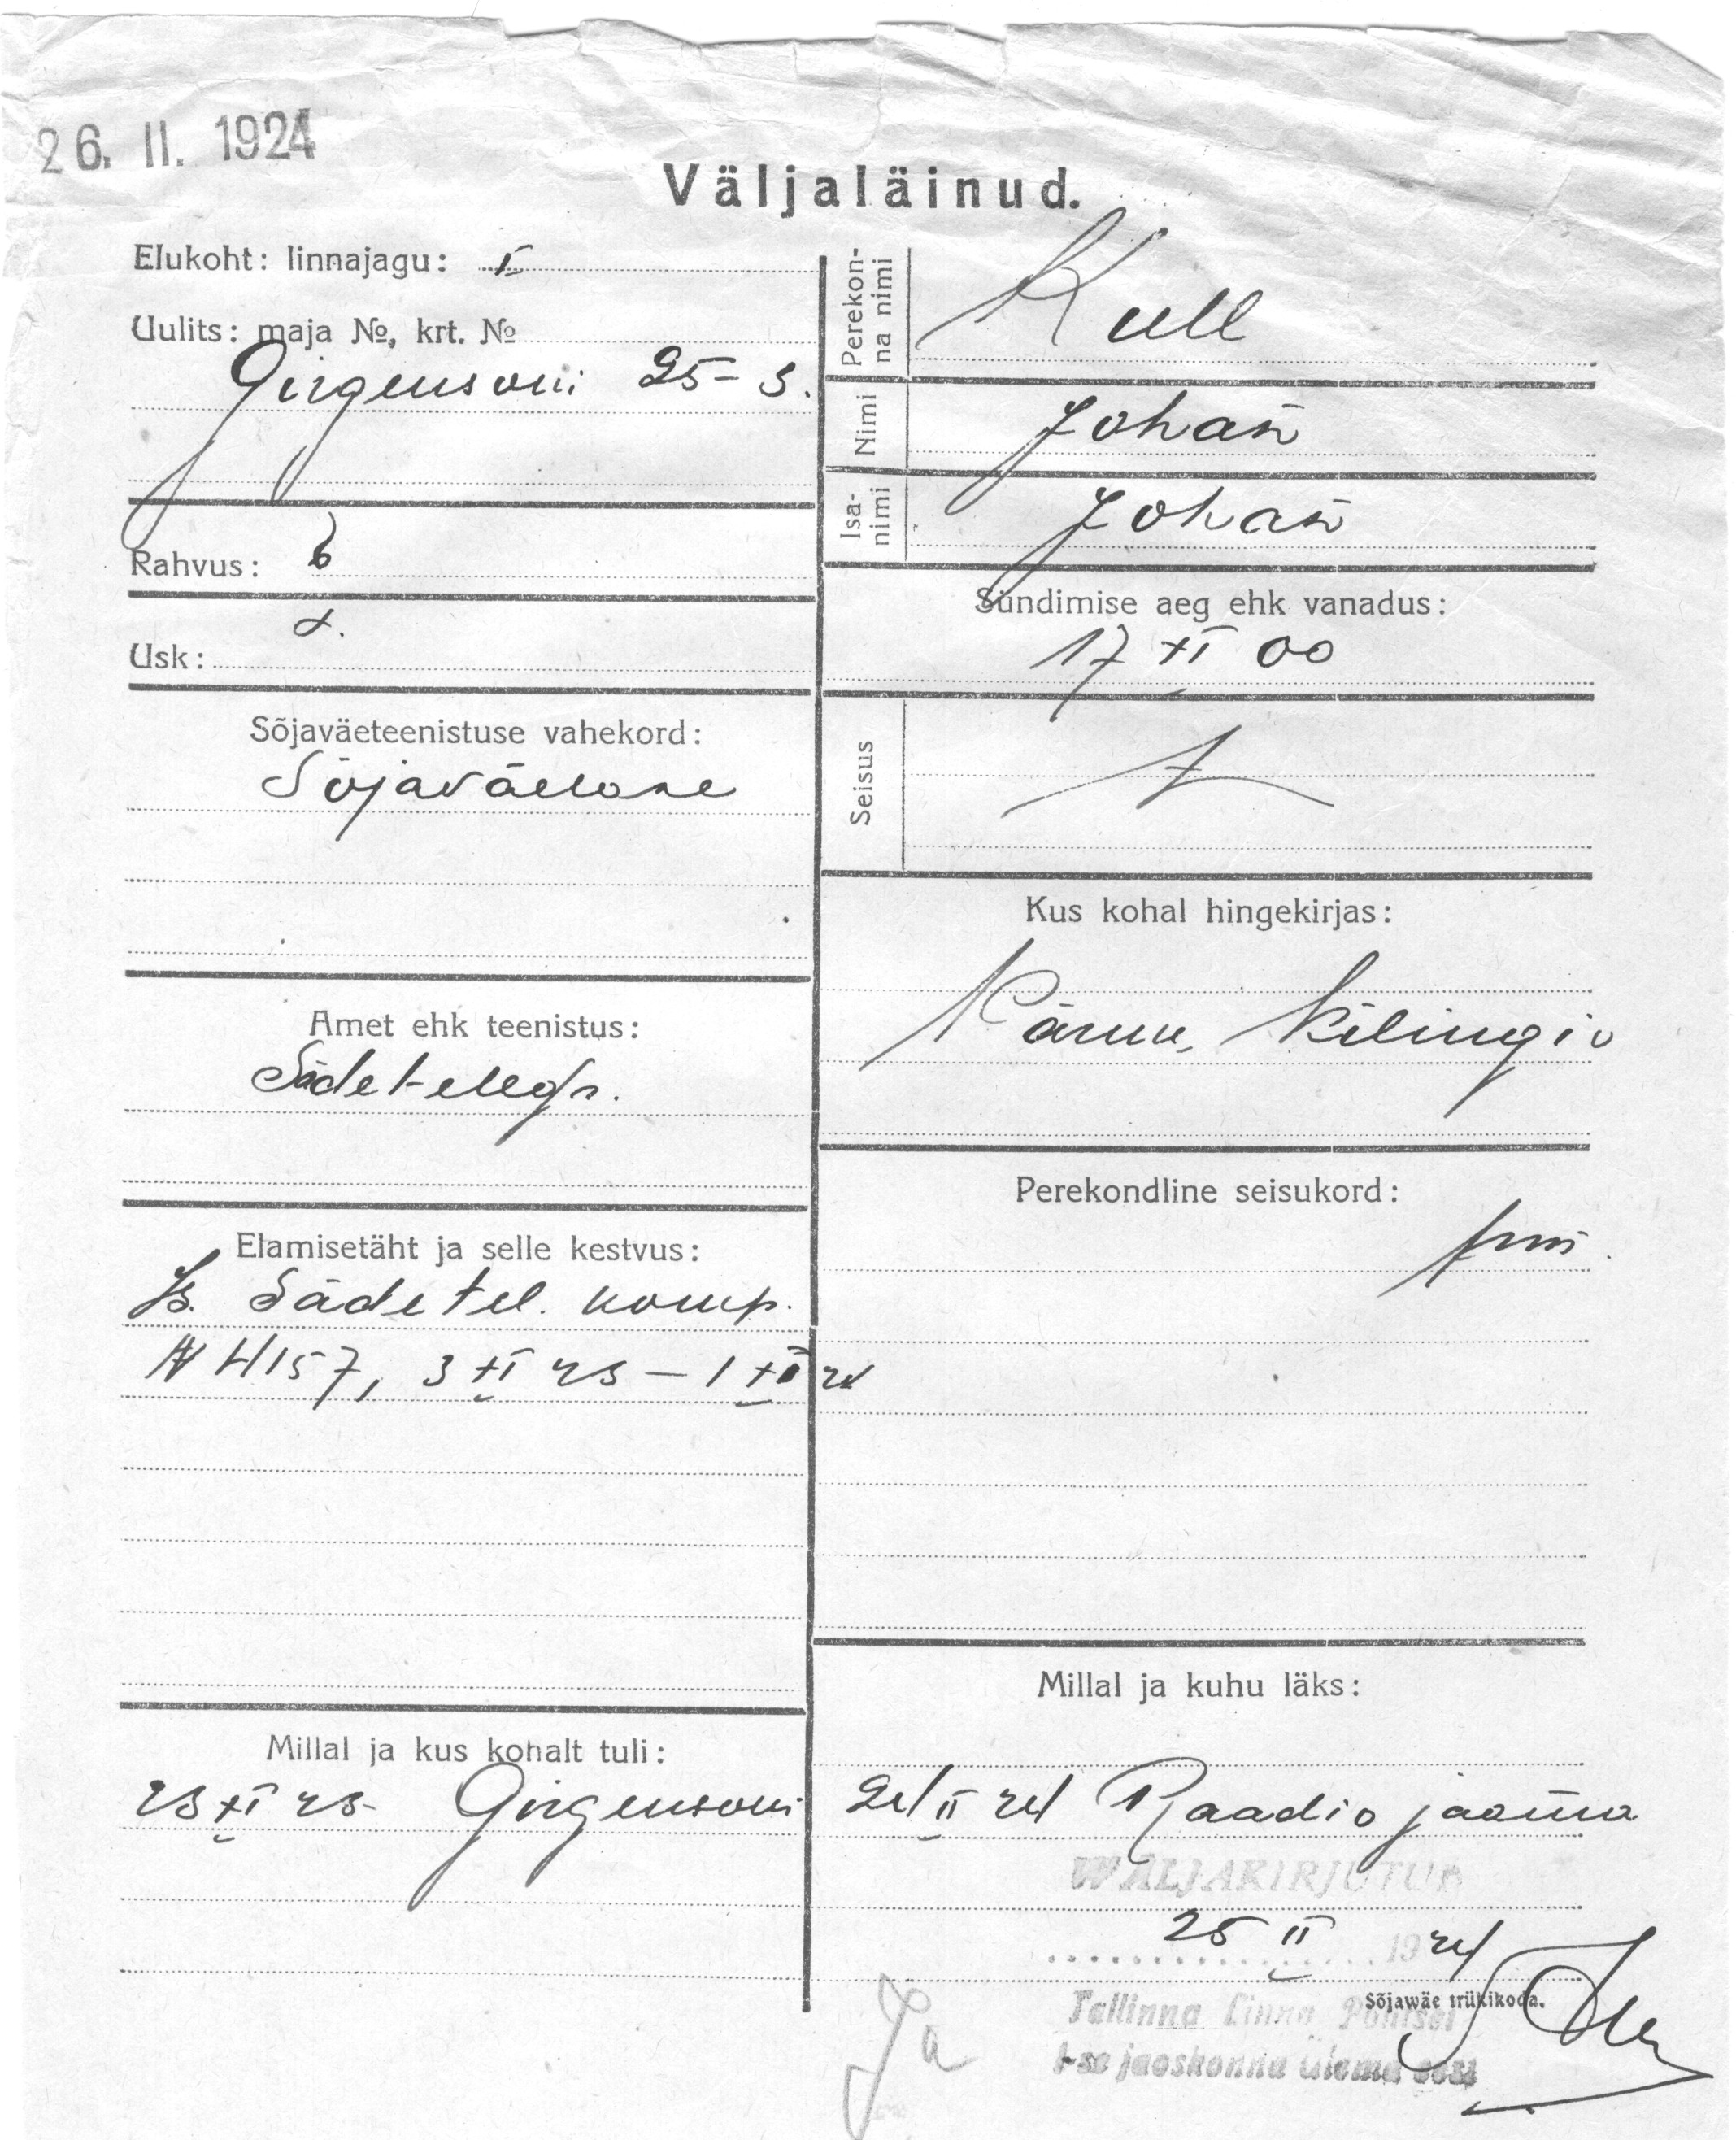 26. II. 1924
Väljaläinud.
Elukoht: linnajagu: I
Uulits: maja №, krt. №
Girgensoni 25-3.
Rahvus: e
Usk: l.
Sõjaväeteenistuse vahekord:
Sõjaväelane
Amet ehk teenistus:
Sädetelegr.
Elamisetäht ja selle kestvus:
Is. Sädetel. komp.
N 4157, 3 XI 23 – 1 XII 24
Millal ja kus kohalt tuli:
23 XI 23 Girgensoni
Perekonna nimi
Kull
Nimi
Johan
Isanimi
Johan
Sündimise aeg ehk vanadus:
17 XI 00
Seisus
Kus kohal hingekirjas:
Pärnu, Kilingi v
Perekondline seisukord:
Millal ja kuhu läks:
24 II 24 Raadio jaama
WÄLJAKIRJUTUD
25 II 1924
Tallinna Linna Politsei
Sõjawäe trükikoda.
I-se jaoskonna ülema